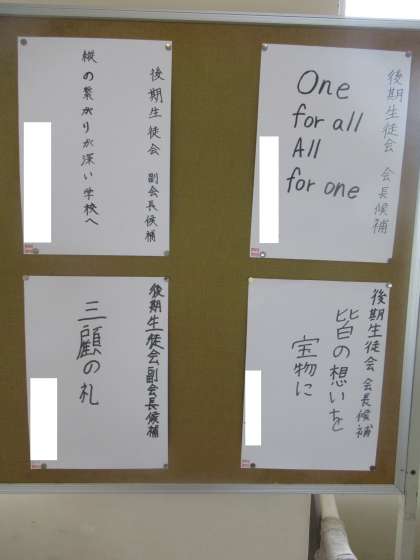 後期生徒会 副会長候補
縦の繋がりが深い学校へ
後期生徒会 会長候補
One
for all
All
for one
後期生徒会副会長候補
三顧の礼
後期生徒会 会長候補
皆の想いを
宝物に